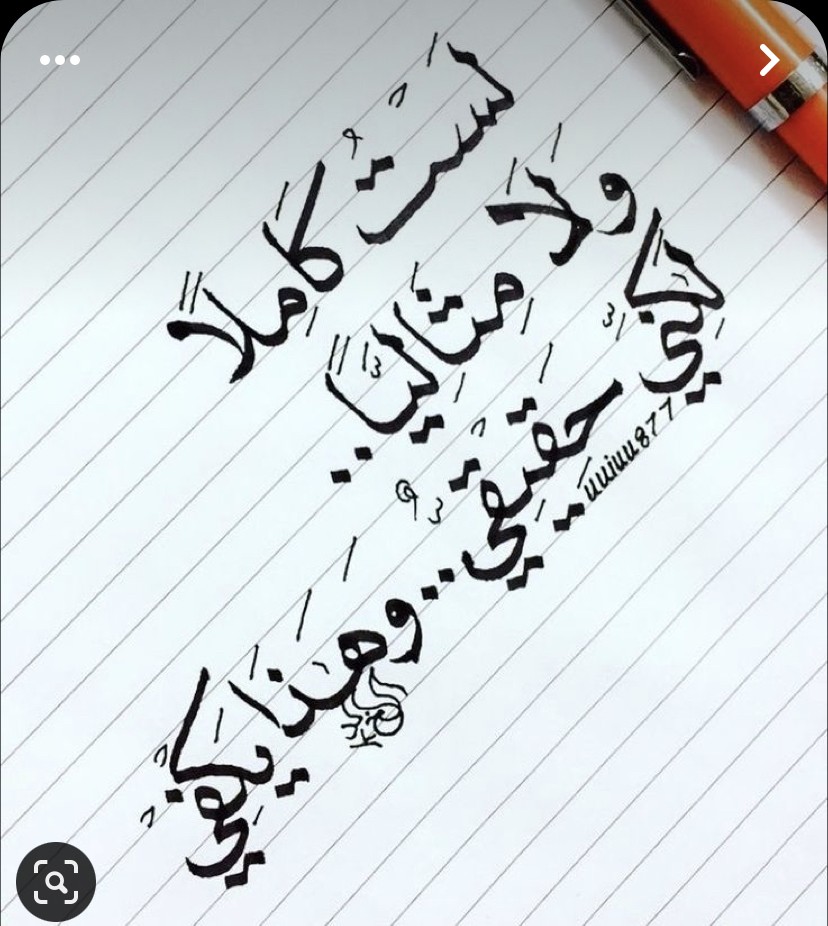 لَسْتُ كَامِلاً
وَلَا مِثَالِيّاً ..
لَكِنِّي
حَقِيقِيٌّ .. وَهَذَا يَكْفِي
uuiuu877